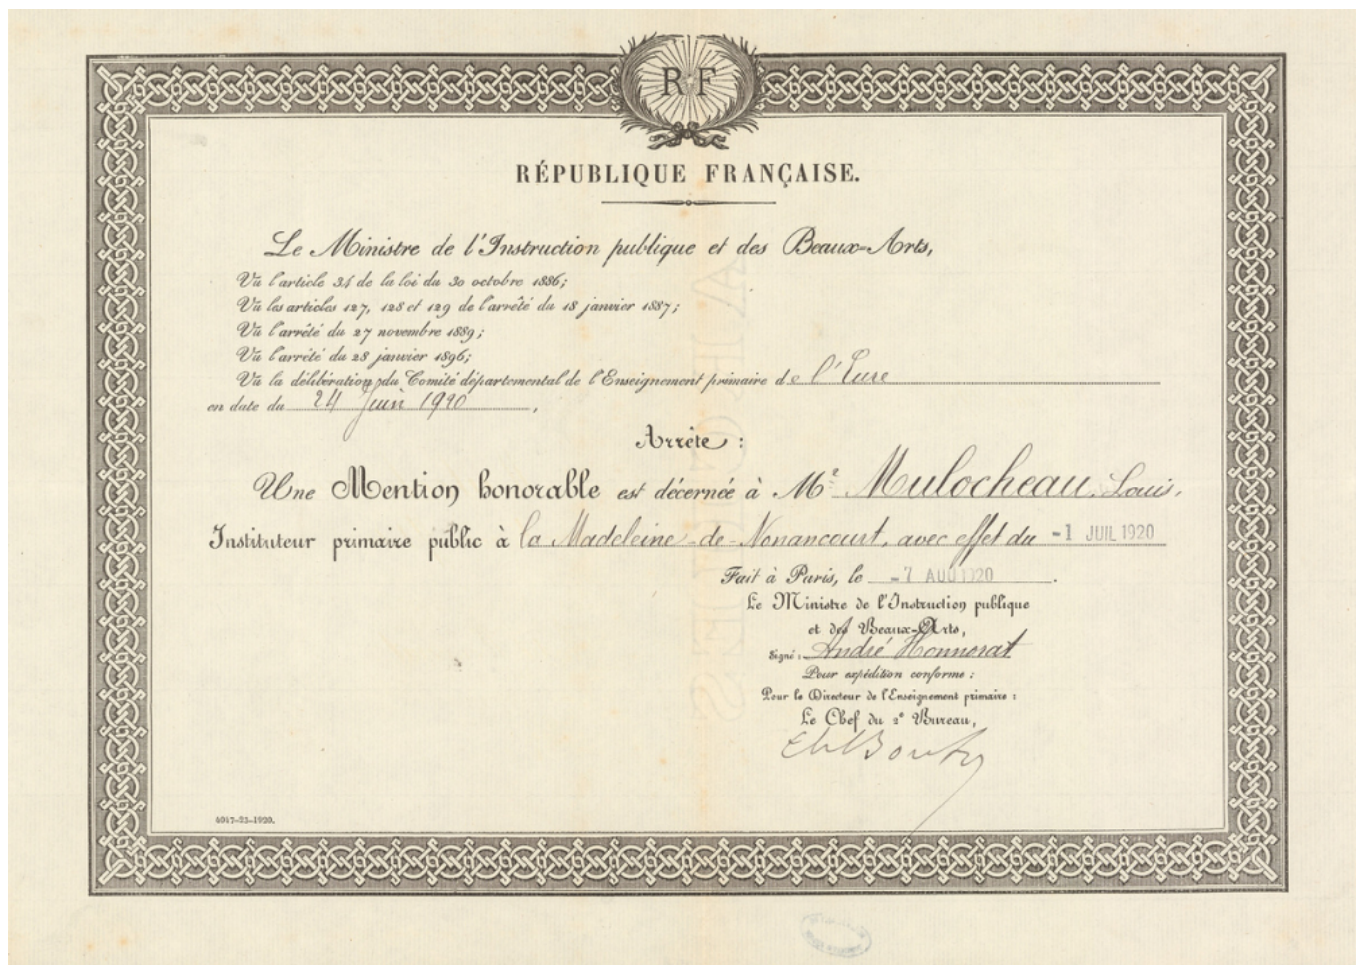 RF
RÉPUBLIQUE FRANÇAISE.
Le Ministre de l'Instruction publique et des Beaux-Arts,
Vu l'article 34 de la loi du 30 octobre 1886;
Vu les articles 127, 128 et 129 de l'arrêté du 18 janvier 1887;
Vu l'arrêté du 27 novembre 1889;
Vu l'arrêté du 28 janvier 1896;
Vu la délibération du Comité départemental de l'Enseignement primaire de l'Eure
en date du 24 Juin 1920,
Arrête :
Une Mention honorable est décernée à Mr Mulocheau, Louis,
Instituteur primaire public à la Madeleine-de-Nonancourt, avec effet du -1 JUIL 1920
Fait à Paris, le -7 AOU 1920.
Le Ministre de l'Instruction publique
et des Beaux-Arts,
Signé : André Honnorat
Pour expédition conforme :
Pour le Directeur de l'Enseignement primaire :
Le Chef du 2e Bureau,
4047-23-1920.